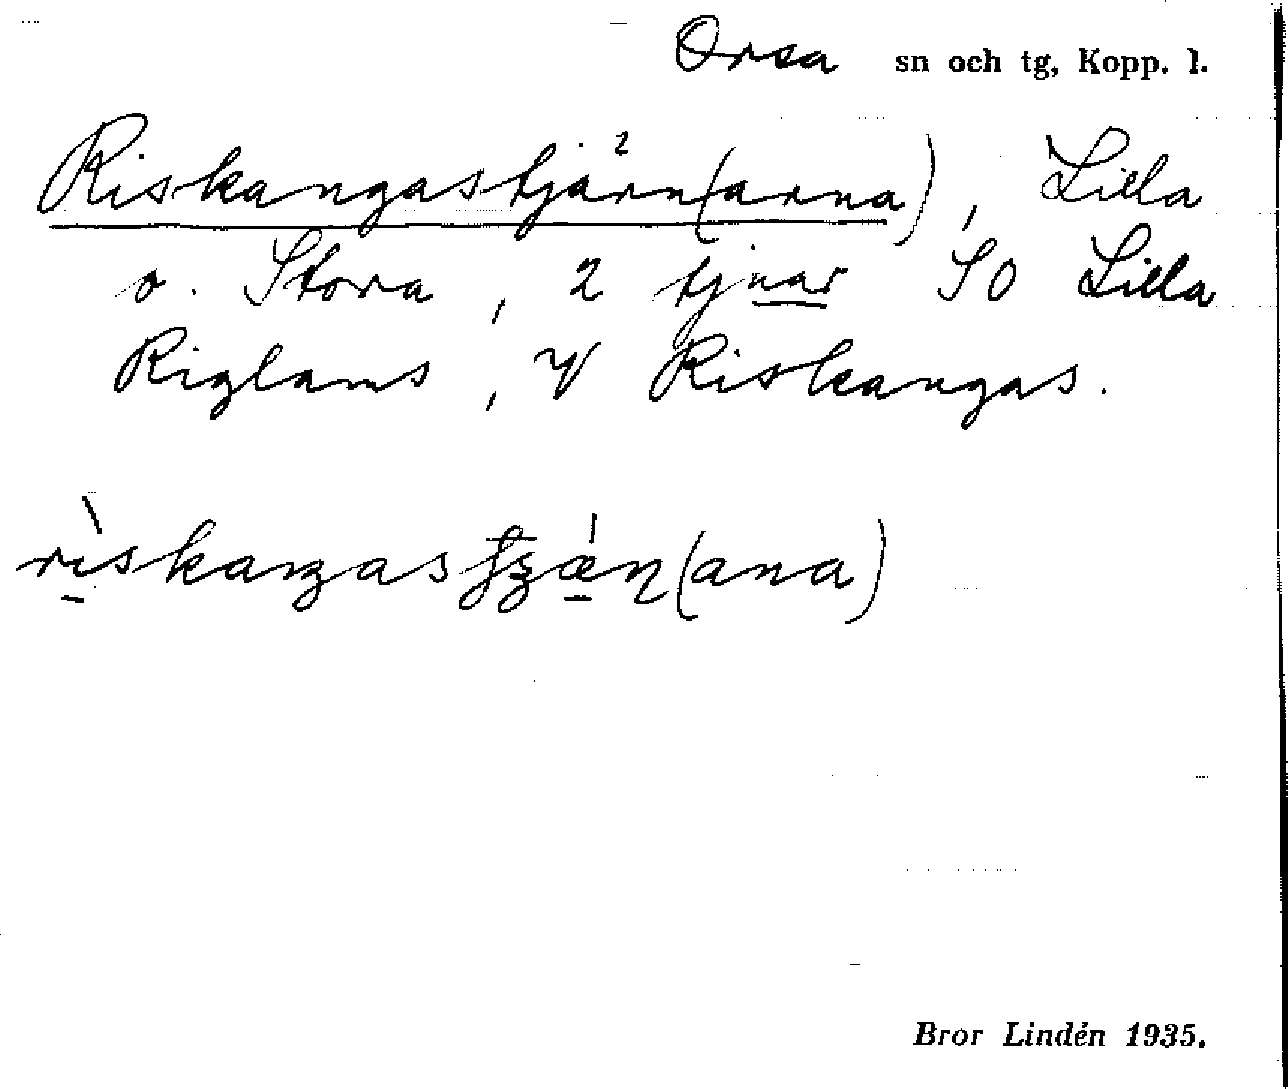 Orsa sn och tg, Kopp. l.
Riskangastjärn(arna), Lilla
o. Stora, 2 tjnar SO Lilla
Riglams, V Riskangas.
Bror Lindén 1935.